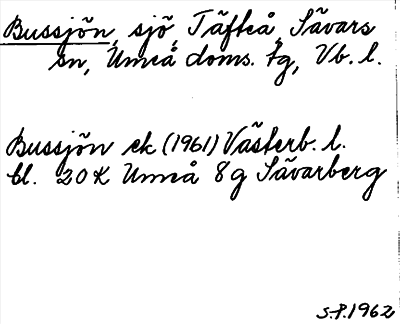 Bussjön, sjö, Täfteå, Sävars
sn, Umeå doms. tg, Vb. l.
Bussjön ek (1961) Västerb. l.
bl. 20 K Umeå 8g Sävarberg
S.P. 1962